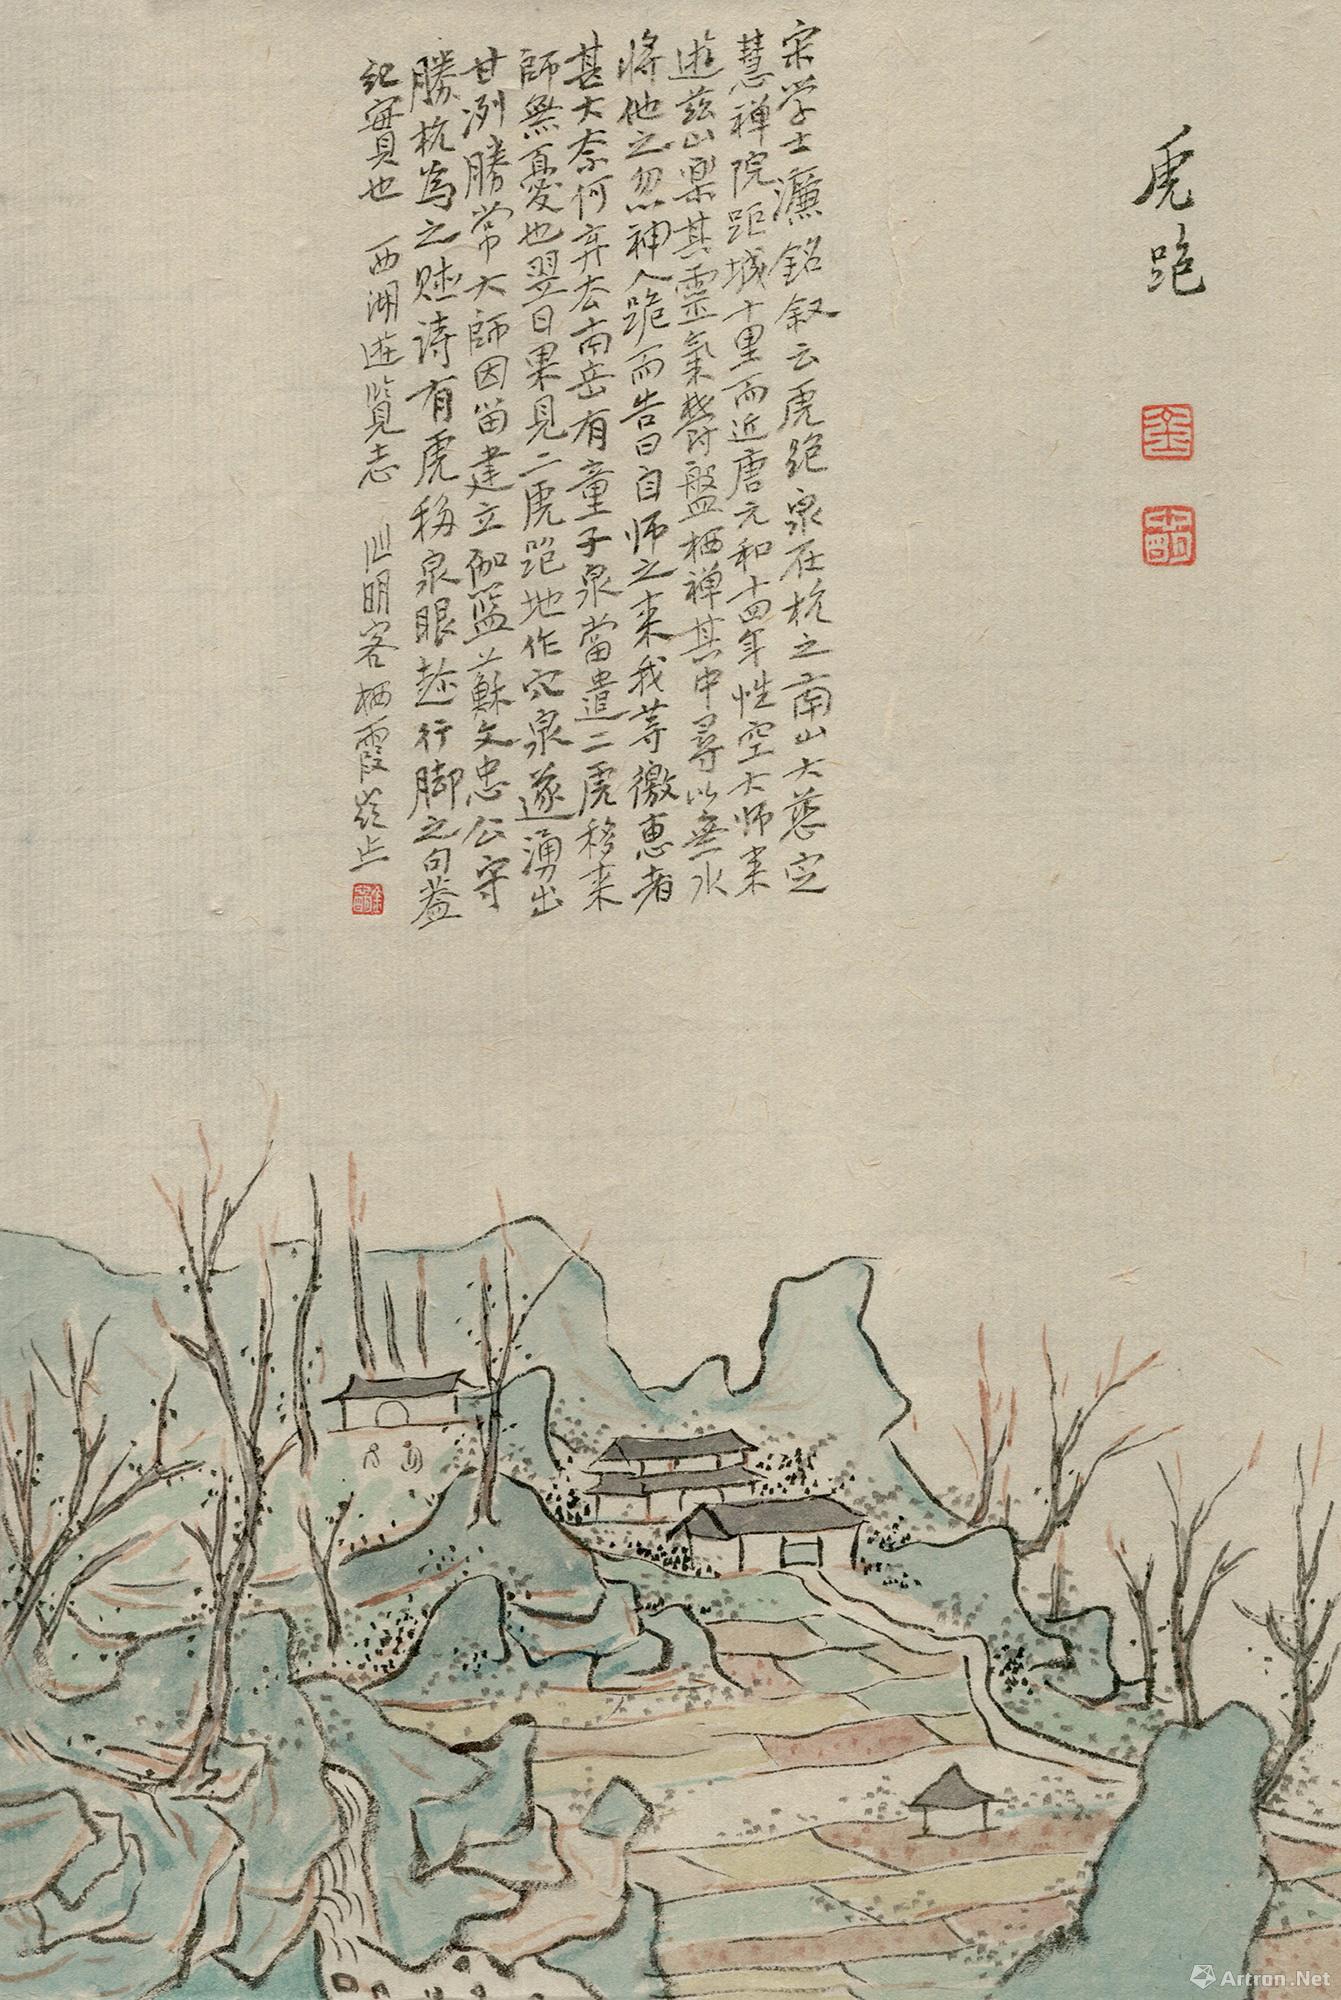 虎跑
宋学士濂銘叙云虎跑泉在杭之南山大慈定
慧禅院距城十里而近唐元和十四年性空大师来
遊兹山樂其靈氣欝盤栖禅其中尋以無水
将他之忽神人跪而告曰自师之来我等徼惠者
甚大奈何弃去南岳有童子泉當遣二虎移来
師無憂也翌日果見二虎跑地作穴泉遂湧出
甘洌勝常大師因留建立伽藍蘇文忠公守
勝杭為之赋诗有虎移泉眼趁行脚之句葢
紀實也 西湖遊覧志 四明客栖霞岭上
Artron.Net